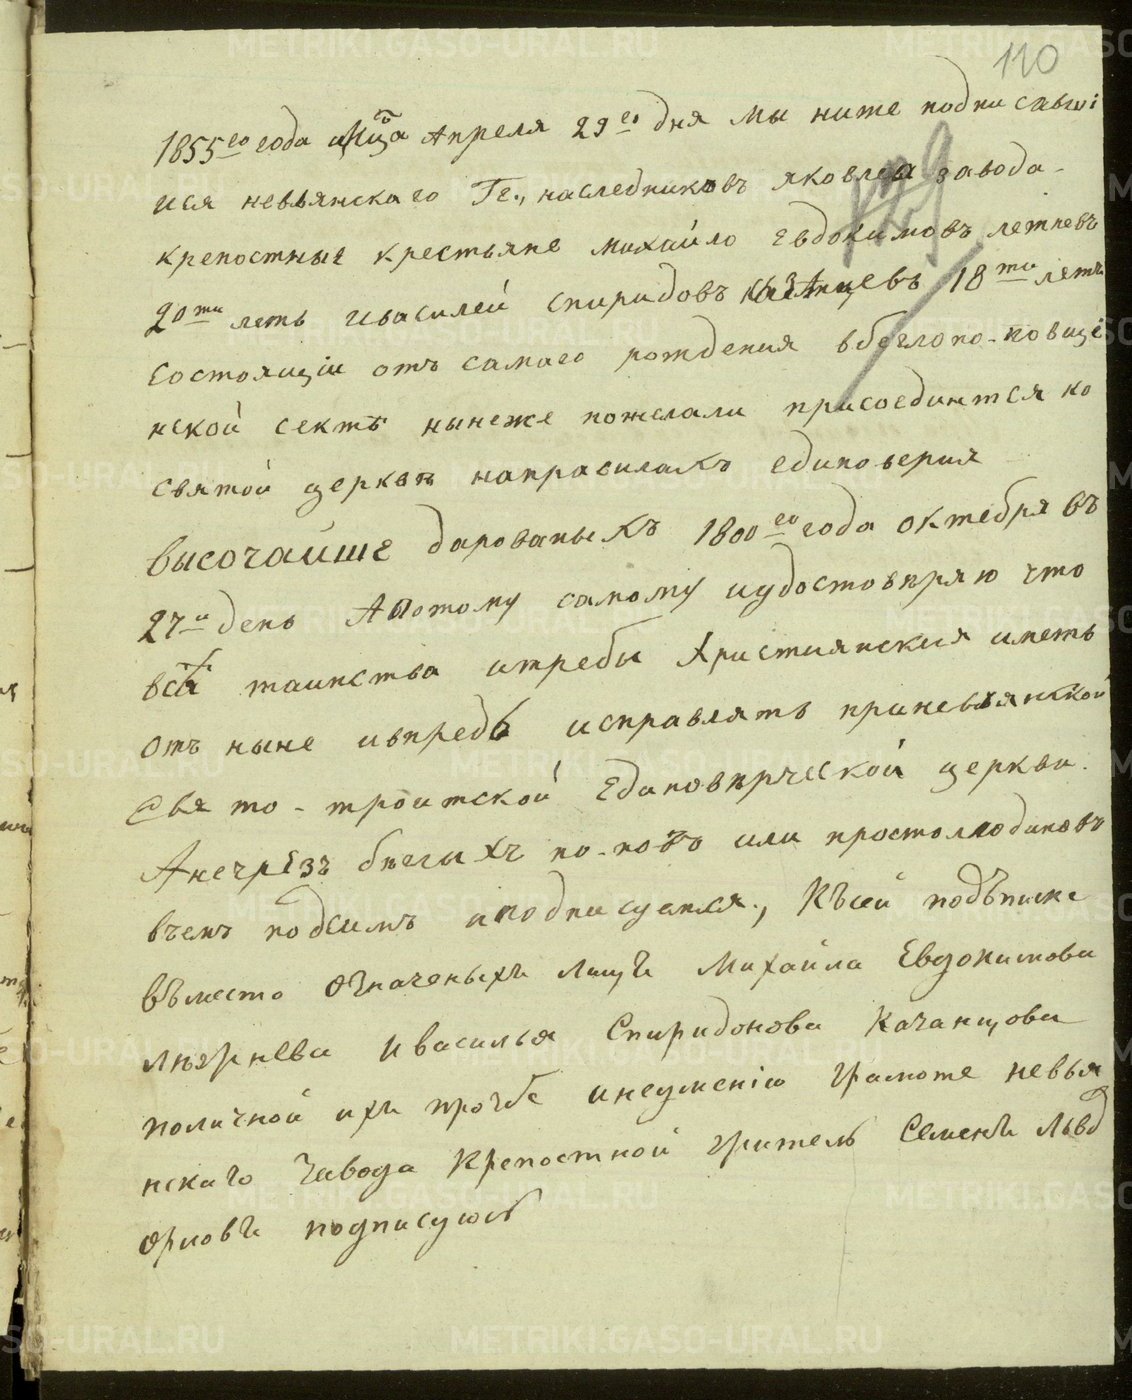 110
1855 го года мца Апреля 29 го дня мы ниже подписавші
ися невьянскаго Гг., наследниковъ яковлева завода
крепостныя крестьяне михайло Евдокимовъ летневъ
20 ти леть ивасилей спиридовъ 18 ти леть
состоящіи отъ самаго рождения вбеглопо-повще
нской сектѣ нынеже пожелали присоединится ко
святой церквѣ направилахъ единоверия
высочайше дарованыхъ 1800 го года октебря въ
27 и день Апотому самому иудостовѣряю что
всѣ таинства итребы християнския иметь
отъ ныне ивпредь исправлять приневьянской
Свято-троитской Единовѣрческой церкви.
Анечрезъ бѣглыхъ по-повъ или простолюдиновъ
вчемъ подсимъ иподписуемся., Късей подъписке
въместо означеныхъ лицъ Михайла Евдокимова
лѣтнева ивасилья Спиридонова Казанцова
поличной ихъ прозбе инеумению грамоте невья
нскаго Завода Крепостной житель Семенъ Львов
Орловъ подписуюсь